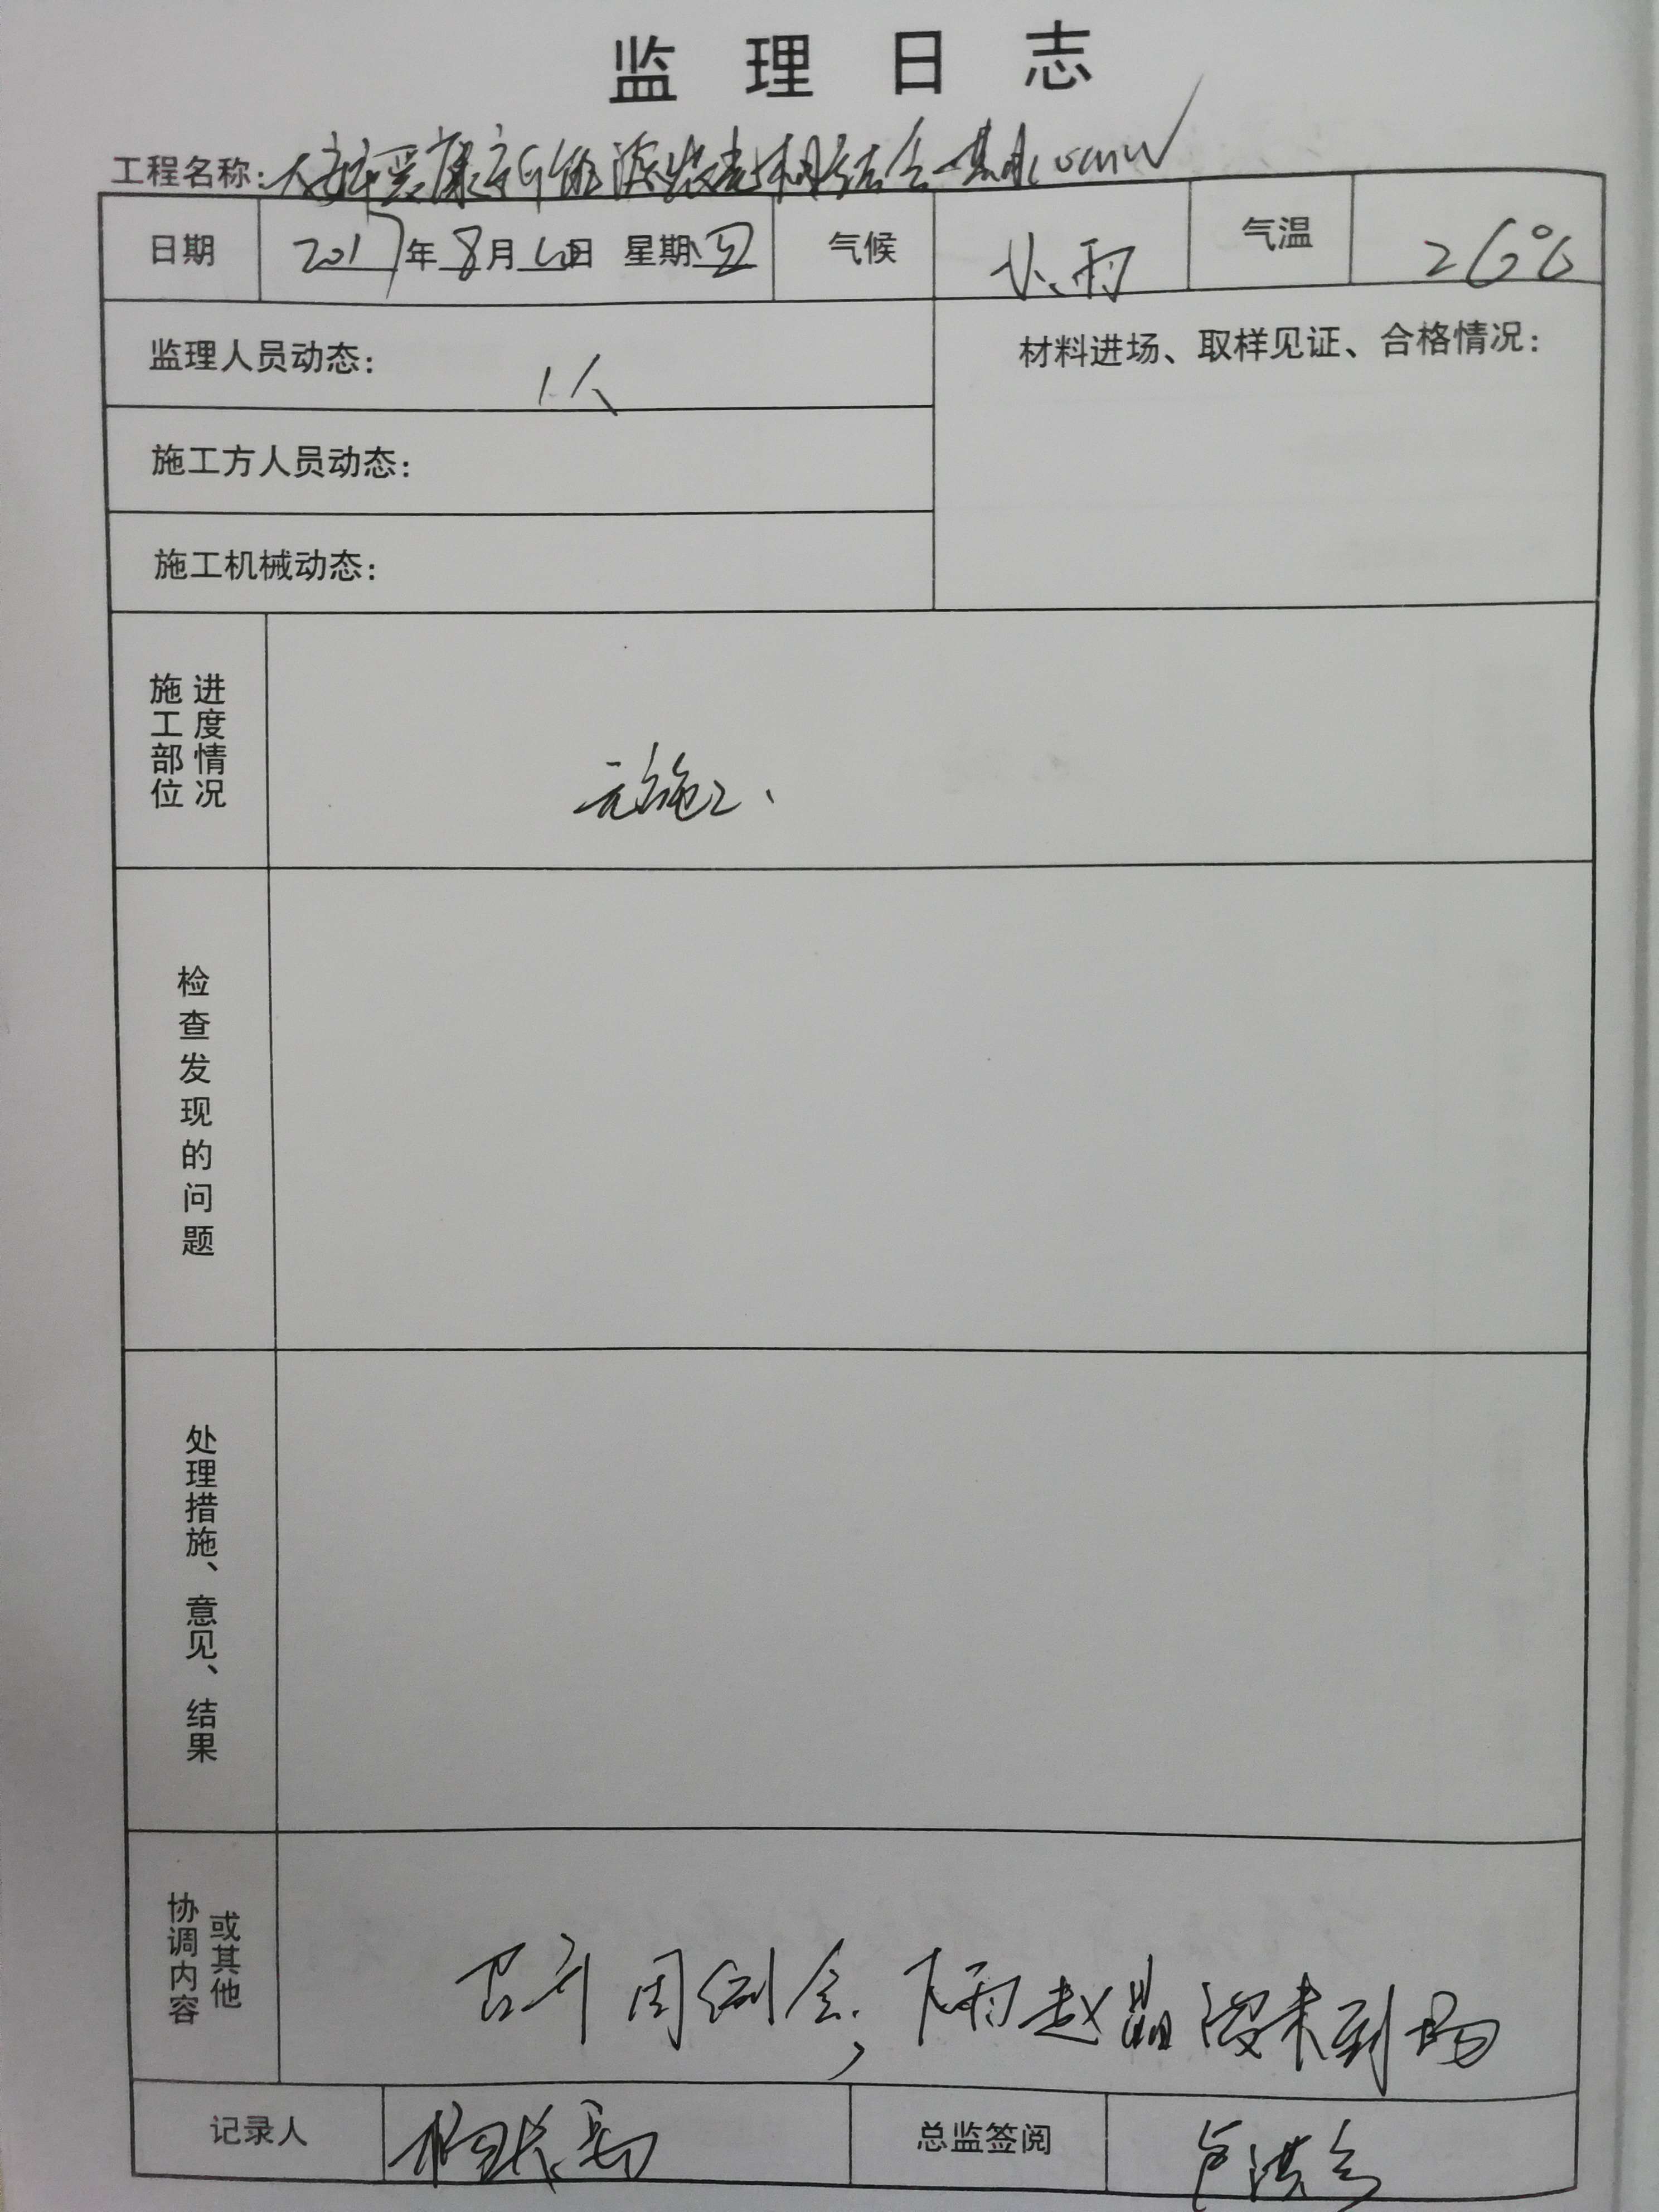 监理日志
工程名称：大安爱康新能源发电相结合一期10MW
日期 2017年8月 日 星期五 气候 小雨 气温 26℃
监理人员动态： 1人 材料进场、取样见证、合格情况：
施工方人员动态：
施工机械动态：
施工部位 进度情况 无施工、
检查发现的问题
处理措施、意见、结果
协调内容 或其他 召开周例会，下雨赵晶没来到场
记录人 总监签阅 卢洪